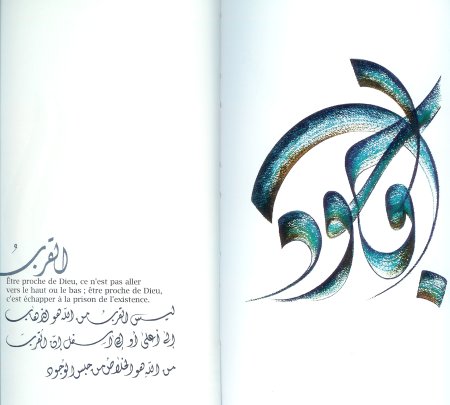 القربُ
Être proche de Dieu, ce n'est pas aller
vers le haut ou le bas ; être proche de Dieu,
c'est échapper à la prison de l'existence.
ليس القرب من الله هو الذهاب
إلى أعلى أو إلى أسفل إن القرب
من الله هو الخلاص من حبس الوجود